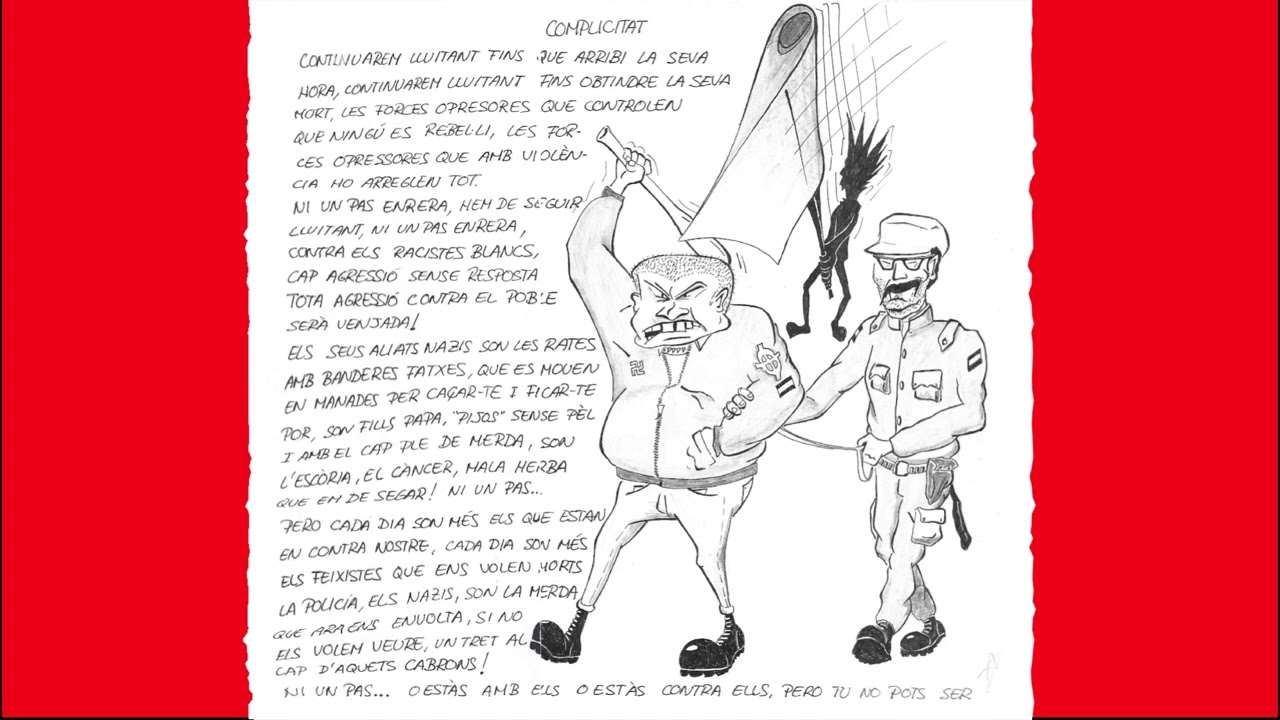 COMPLICITAT
CONTINUAREM LLUITANT FINS QUE ARRIBI LA SEVA
HORA, CONTINUAREM LLUITANT FINS OBTINDRE LA SEVA
MORT, LES FORCES OPRESORES QUE CONTROLEN
QUE NINGÚ ES REBEL·LI, LES FOR-
CES OPRESSORES QUE AMB VIOLÈN-
CIA HO ARREGLEN TOT.
NI UN PAS ENRERA, HEM DE SEGUIR
LLUITANT, NI UN PAS ENRERA,
CONTRA ELS RACISTES BLANCS,
CAP AGRESSIÓ SENSE RESPOSTA
TOTA AGRESSIÓ CONTRA EL POBLE
SERÀ VENJADA!
ELS SEUS ALIATS NAZIS SON LES RATES
AMB BANDERES FATXES, QUE ES MOUEN
EN MANADES PER CAÇAR-TE I FICAR-TE
POR, SON FILLS PAPA, "PIJOS" SENSE PÈL
I AMB EL CAP PLE DE MERDA, SON
L'ESCÒRIA, EL CÀNCER, MALA HERBA
QUE EM DE SEGAR! NI UN PAS...
PERO CADA DIA SON MÉS ELS QUE ESTAN
EN CONTRA NOSTRE, CADA DIA SON MÉS
ELS FEIXISTES QUE ENS VOLEN MORTS
LA POLICÍA, ELS NAZIS, SON LA MERDA
QUE ARA ENS ENVOLTA, SI NO
ELS VOLEM VEURE, UN TRET AL
CAP D'AQUETS CABRONS!
NI UN PAS... O ESTÀS AMB ELLS O ESTÀS CONTRA ELLS, PERO TU NO POTS SER